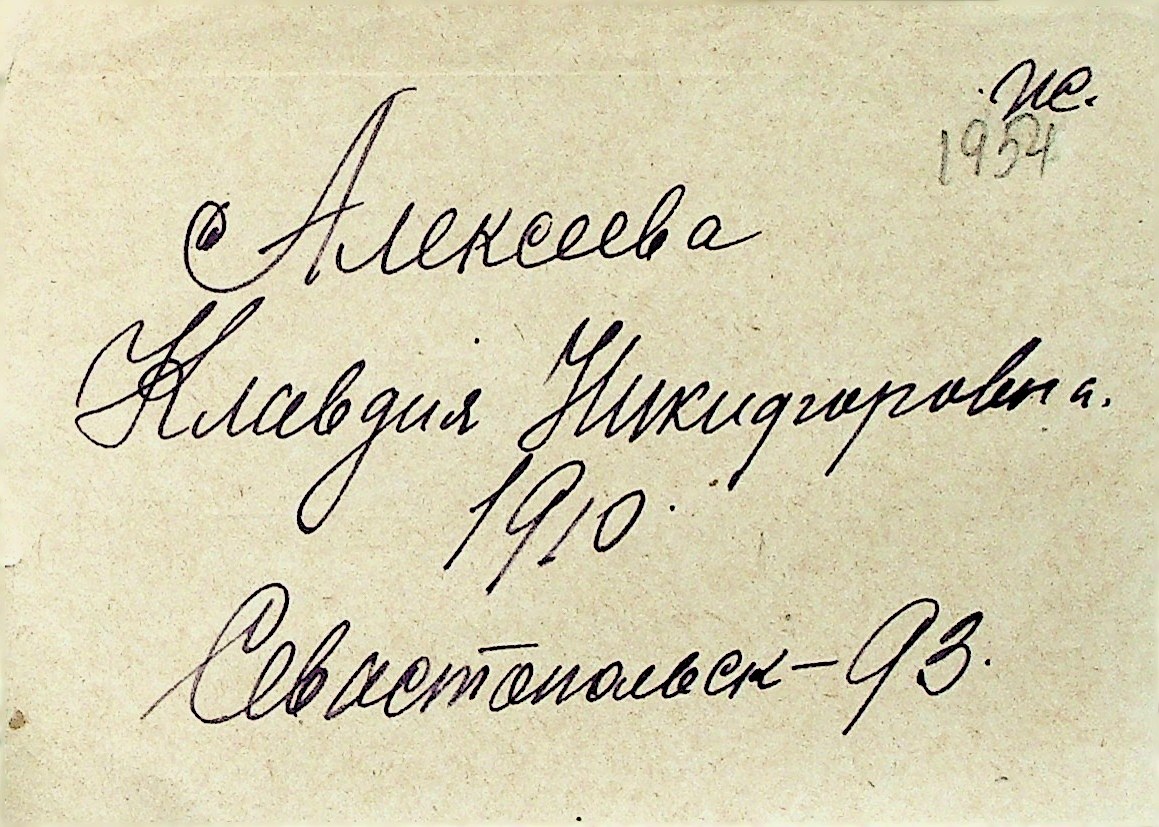 ж.
1954
Алексеева
Клавдия Никифоровна.
1910.
Севастопольск-93.